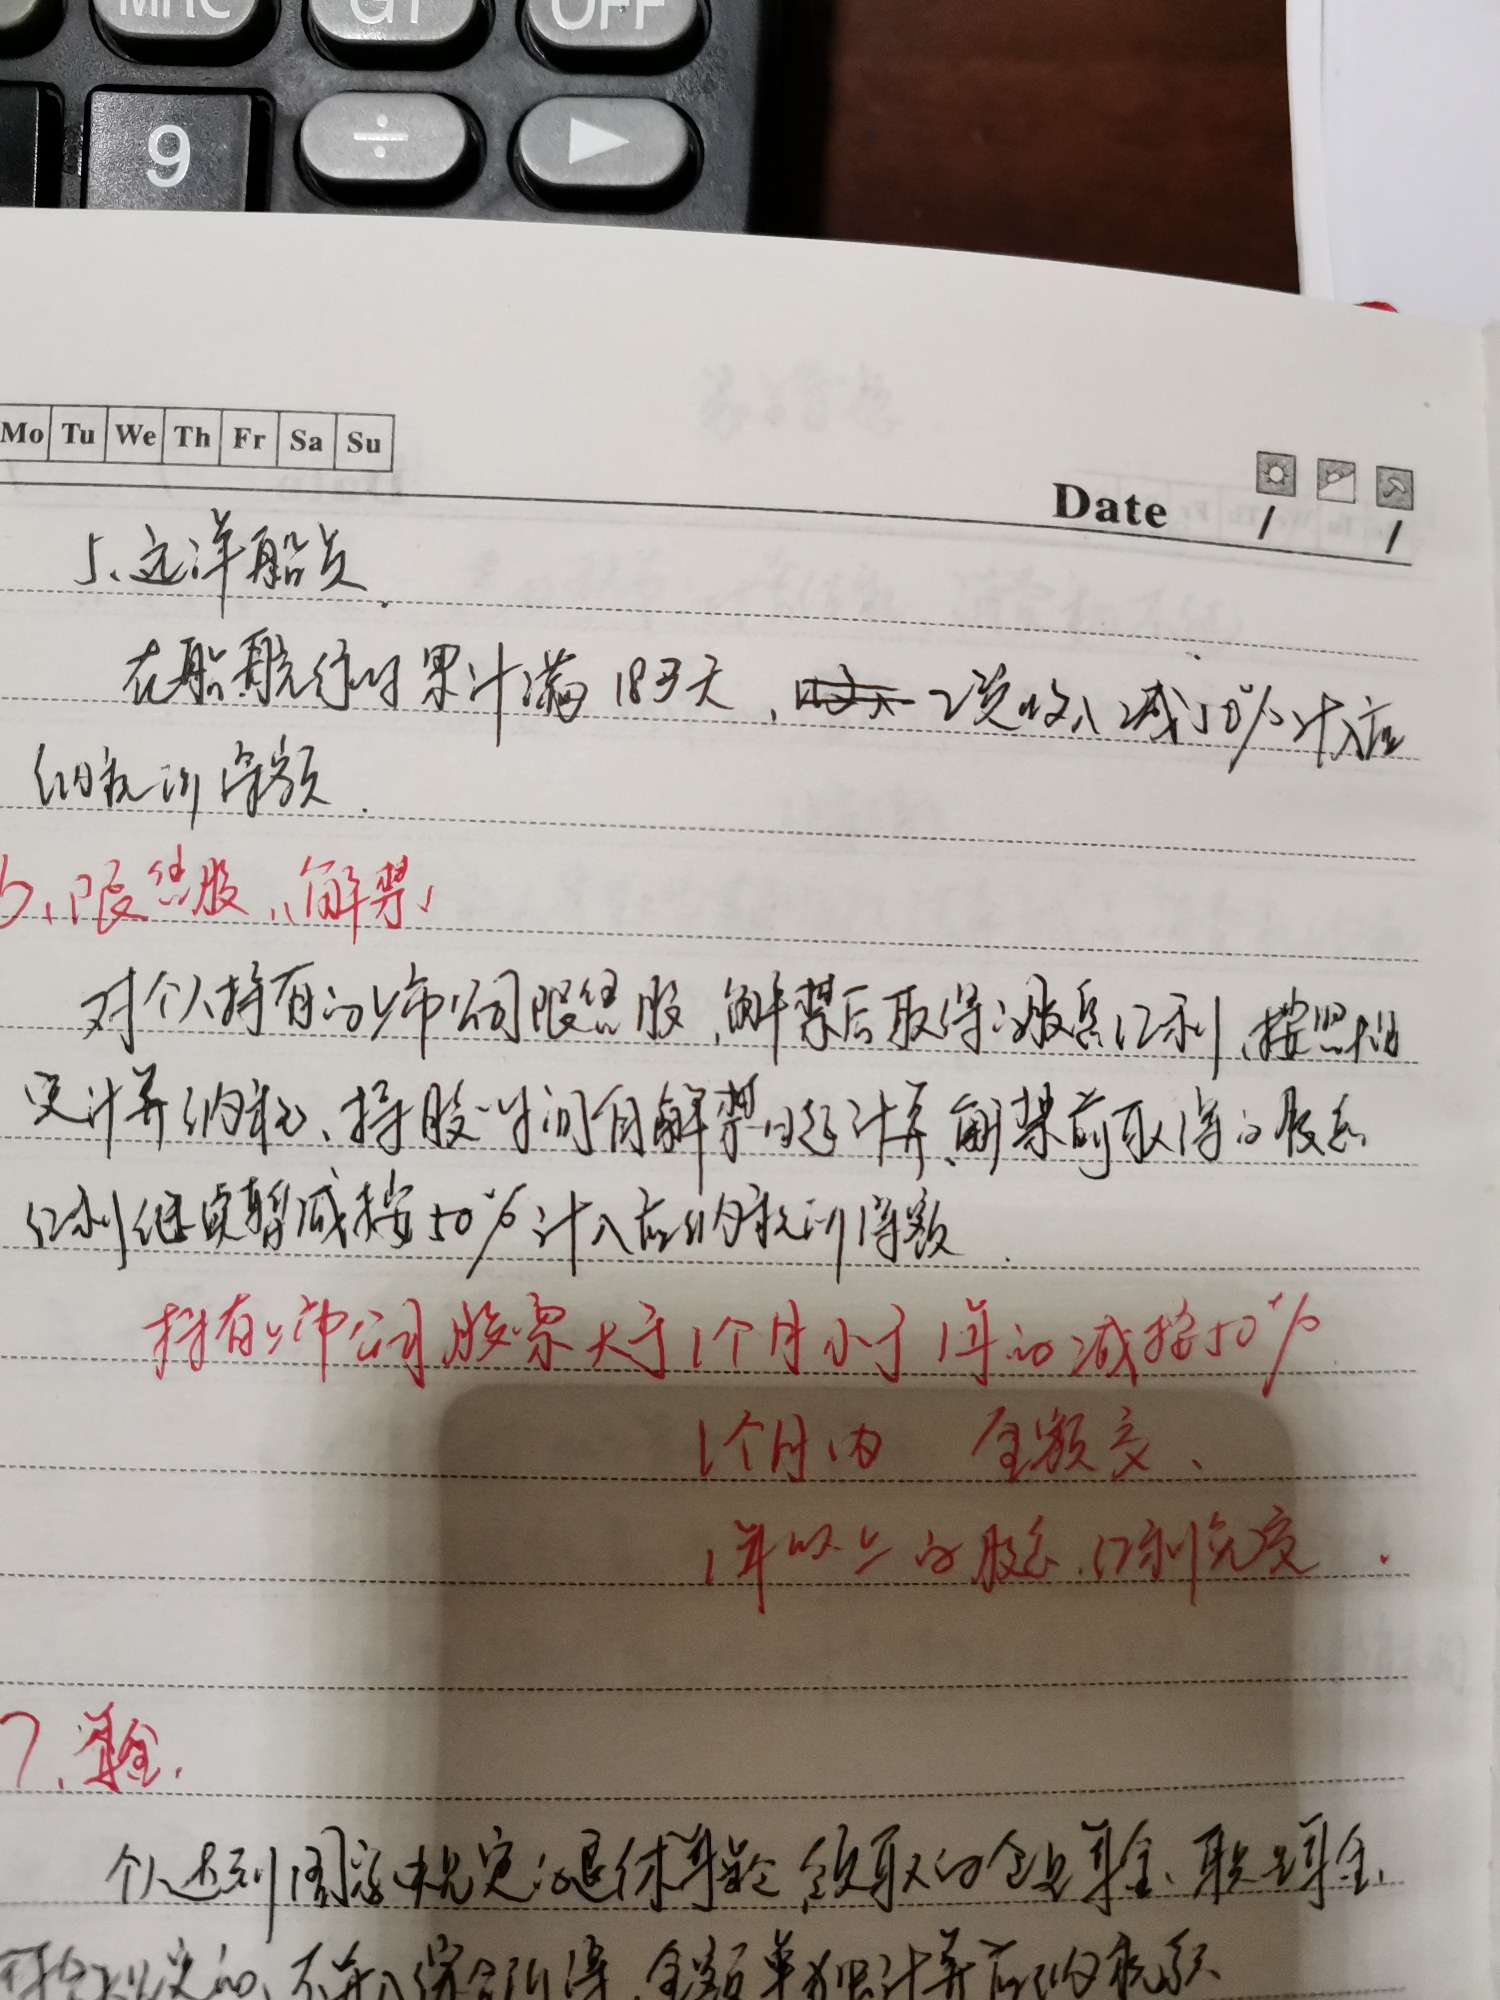 MRC GT OFF
9 ÷ ▶
Mo Tu We Th Fr Sa Su
Date / /
5、远洋船员.
在船航行时累计满183天,工资收入减50%计入应
纳税所得额.
6、限售股、解禁、
对个人持有的上市公司限售股、解禁后取得的股息红利、按照规
定计算纳税、持股时间自解禁日起计算、解禁前取得的股息
红利继续暂减按50%计入应纳税所得额.
持有上市公司股票大于1个月小于1年的减按50%
1个月内 全额交、
1年以上的股息、红利免交.
7、年金、
个人达到国家规定的退休年龄领取的企业年金、职业年金、
符合规定的、不并入综合所得、全额单独计算应纳税款